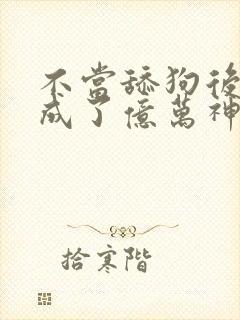 不當舔狗後
成了億萬神
拾寒階